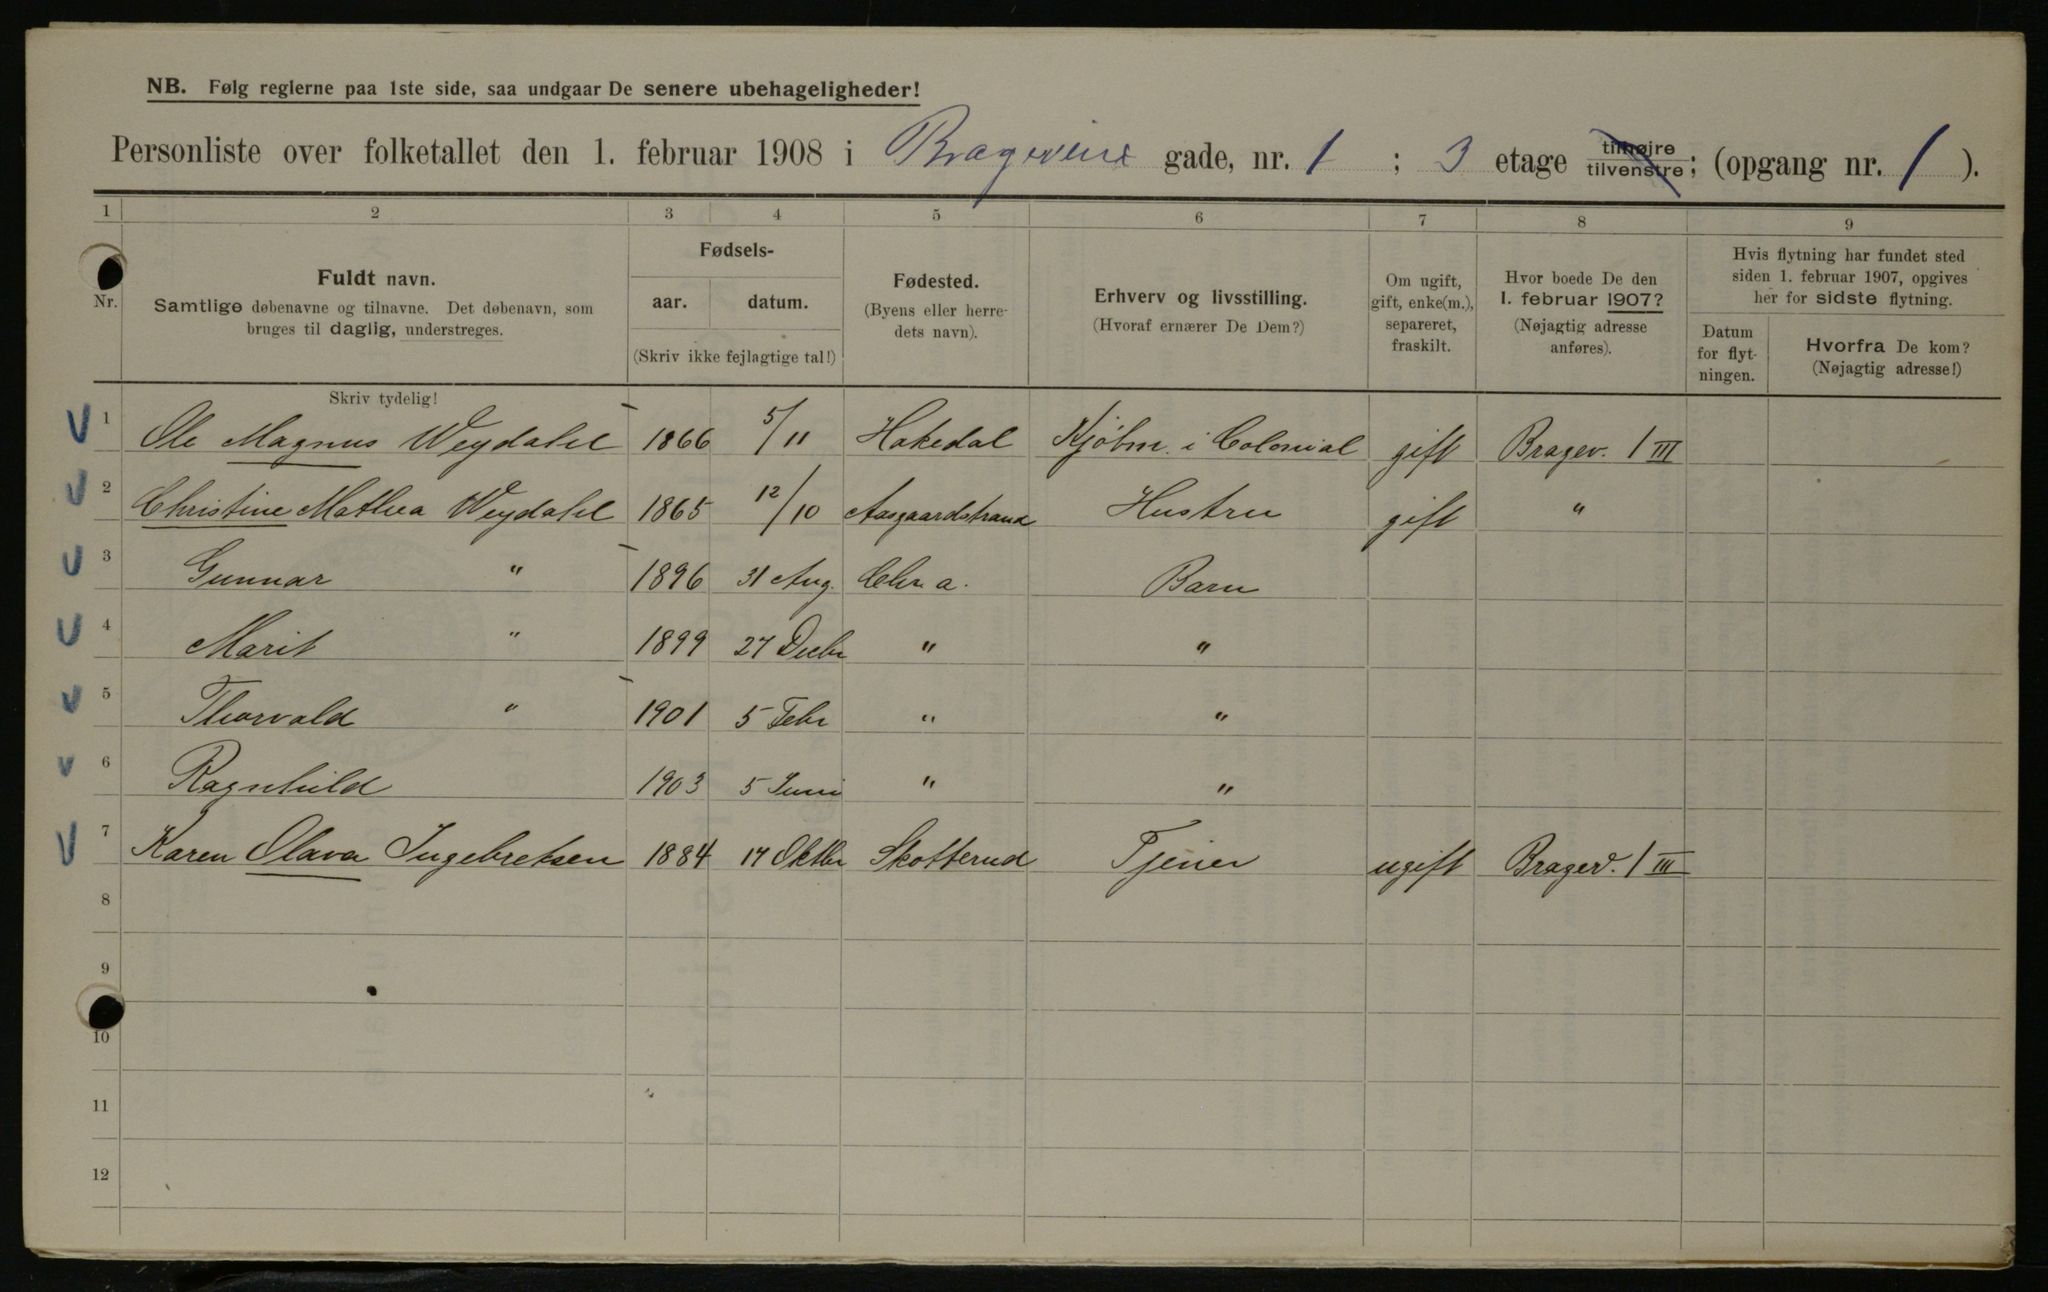 NB. Følg reglerne paa 1ste side, saa undgaar De senere ubehageligheder!
Personliste over folketallet den 1. februar 1908 i Brageveien gade, nr. 1 ; 3 etage tilhøjre tilvenstre; (opgang nr. 1 ).
1 2 3 4 5 6 7 8 9
Nr.
Fuldt navn.
Samtlige døbenavne og tilnavne. Det døbenavn, som
bruges til daglig, understreges.
Skriv tydelig!
Fødsels-
aar. datum.
(Skriv ikke fejlagtige tal!)
Fødested.
(Byens eller herre-
dets navn).
Erhverv og livsstilling.
(Hvoraf ernærer De Dem?)
Om ugift,
gift, enke(m.),
separeret,
fraskilt.
Hvor boede De den
1. februar 1907?
(Nøjagtig adresse
anføres).
Hvis flytning har fundet sted
siden 1. februar 1907, opgives
her for sidste flytning.
Datum
for flyt-
ningen.
Hvorfra De kom?
(Nøjagtig adresse!)
1 Ole Magnus Weydahl 1866 5/11 Hakedal Kjøbm. i Colonial gift Bragev. 1 III
2 Christine Mathea Weydahl 1865 12/10 Aasgaardstrand Hustru gift "
3 Gunnar " 1896 31 Aug. Chr.a. Barn
4 Marit " 1899 27 Decbr " "
5 Thorvald " 1901 5 Febr " "
6 Ragnhild 1903 5 Juni " "
7 Karen Olava Ingebretsen 1884 17 Oktbr Skotterud Tjener ugift Bragev. 1 III
8
9
10
11
12